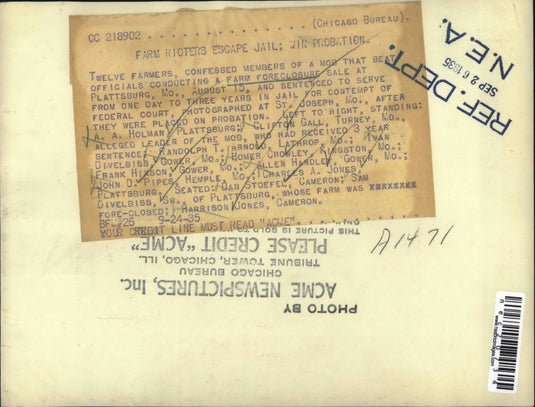 CC 218902 . . . . . . . . . . . . . . . . (CHICAGO BUREAU).
FARM RIOTERS ESCAPE JAIL; WIN PROBATION.
TWELVE FARMERS, CONFESSED MEMBERS OF A MOB THAT BEAT
OFFICIALS CONDUCTING A FARM FORECLOSURE SALE AT
PLATTSBURG, MO., AUGUST 15, AND SENTENCED TO SERVE
FROM ONE DAY TO THREE YEARS IN JAIL FOR CONTEMPT OF
FEDERAL COURT, PHOTOGRAPHED AT ST. JOSEPH, MO., AFTER
THEY WERE PLACED ON PROBATION. LEFT TO RIGHT, STANDING:
A. A. HOLMAN, PLATTSBURG; CLIFTON GALL, TURNEY, MO.,
ALLEGED LEADER OF THE MOB, WHO HAD RECEIVED 3 YEAR
SENTENCE; RANDOLPH T. ARNOLD, LATHROP, MO.; IVAN
DIVELBISS, GOWER, MO.; HOMER CROWLEY, KINGSTON, MO.;
FRANK HIXSON, GOWER, MO.; ALLEN HANDLEY, GOWER, MO.;
JOHN D. PIPES, HEMPLE, MO.; CHARLES A. JONES,
PLATTSBURG. SEATED: DAN STOEFEL, CAMERON; SAM
DIVELBISS, SR., OF PLATTSBURG, WHOSE FARM WAS
FORE-CLOSED; HARRISON JONES, CAMERON.
BF 226 9-24-35
YOUR CREDIT LINE MUST READ "ACME"
REF. DEPT.
SEP 26 1935
N.E.A.
A1471
PHOTO BY
ACME NEWSPICTURES, Inc.
CHICAGO BUREAU
TRIBUNE TOWER, CHICAGO, ILL.
PLEASE CREDIT "ACME"
THIS PICTURE IS SOLD TO